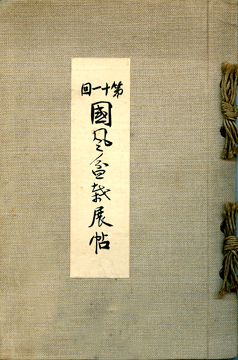 第十一回
國風盆栽展帖